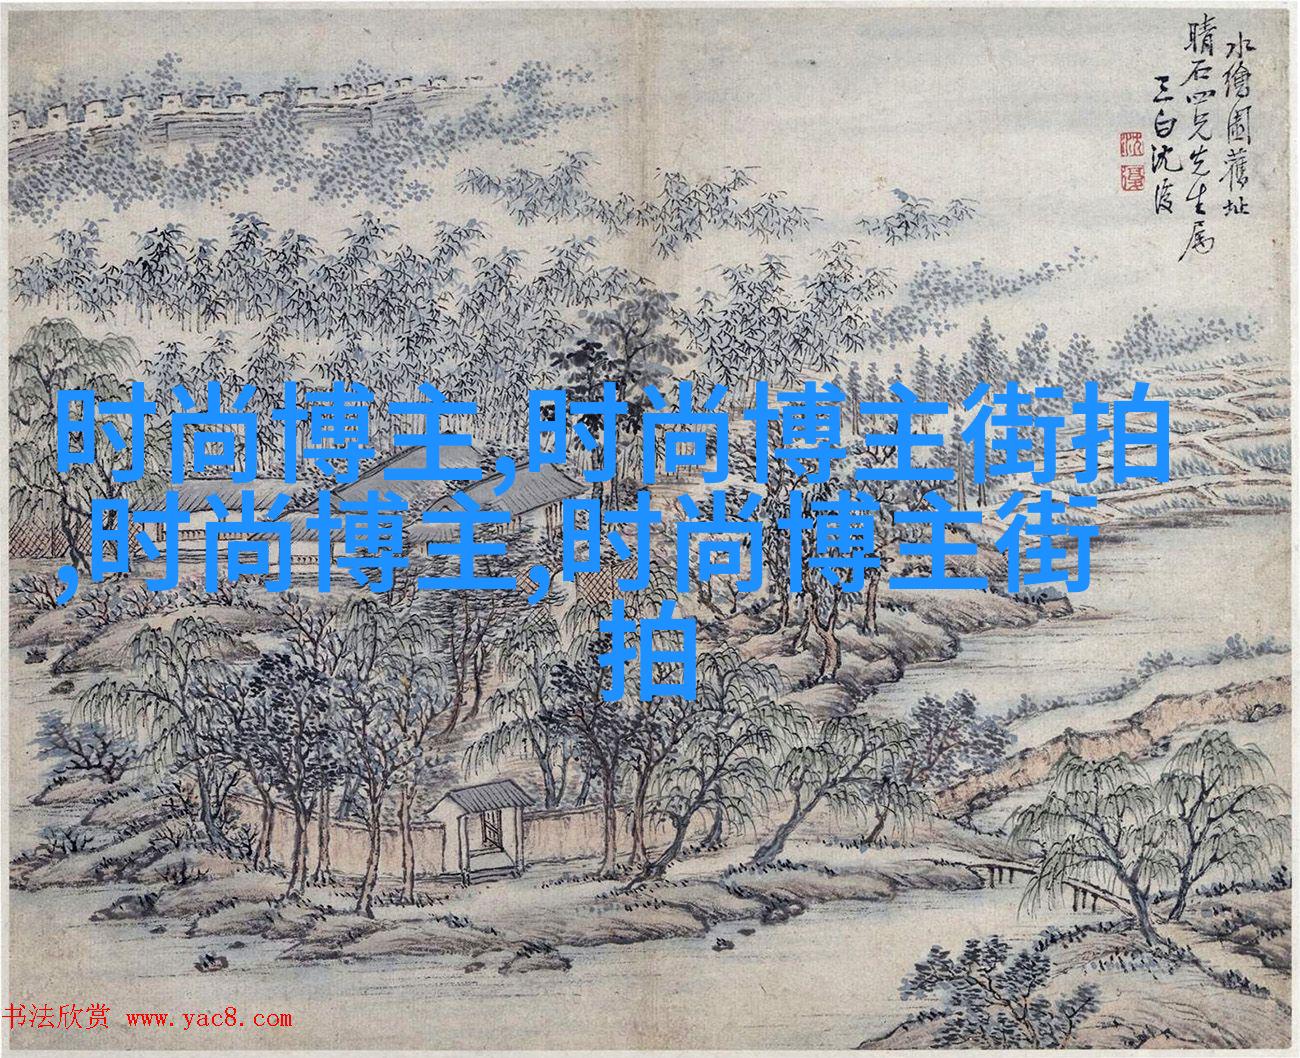 水繪園舊址
晴石四兄先生属
三白沈復
沈
復
时尚博主,时尚博主街拍
,时尚博主,时尚博主街
拍
书法欣赏 www.yac8.com